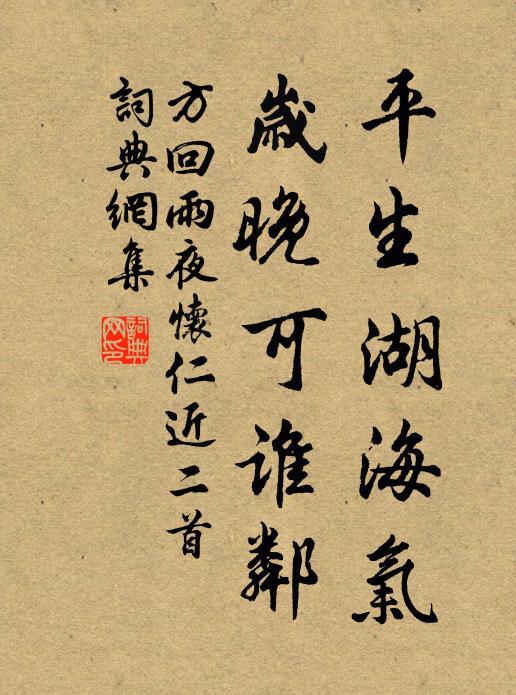 平生湖海氣
歲晚可誰鄰
方回雨夜懷仁近二首
詞典網集
詞典网印